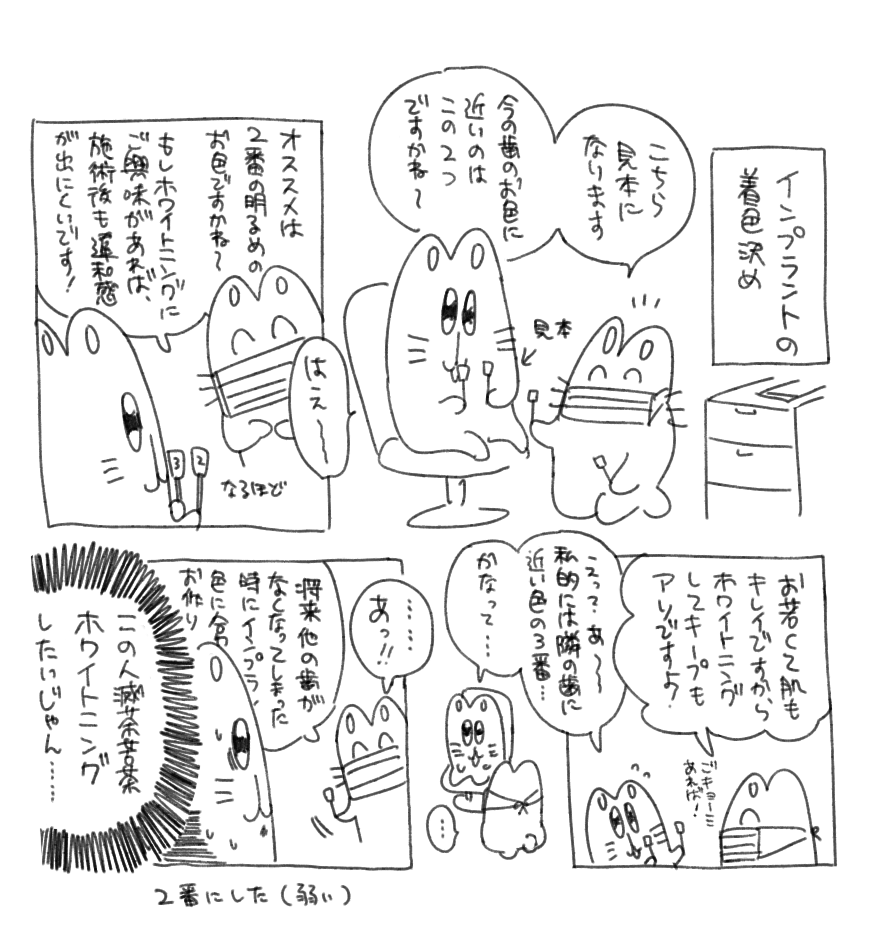 インプラントの
着色決め
こちら
見本に
なります
今の歯のお色に
近いのは
この2つ
ですかね〜
見本
オススメは
2番の明るめの
お色ですかね〜
もしホワイトニングに
ご興味があれば、
施術後も違和感
が出にくいです!
はえ〜〜
3
2
なるほど
お若くて肌も
キレイですから
ホワイトニング
してキープも
アリですよ!
ごキョーミ
あれば!
えっ?あ〜〜
私的には隣の歯に
近い色の3番…
かなって…
…
……
あっ!!
将来他の歯が
なくなってしまった
時にインプラ
色に合
お作り
この人滅茶苦茶
ホワイトニング
したいじゃん……
2番にした(弱い)